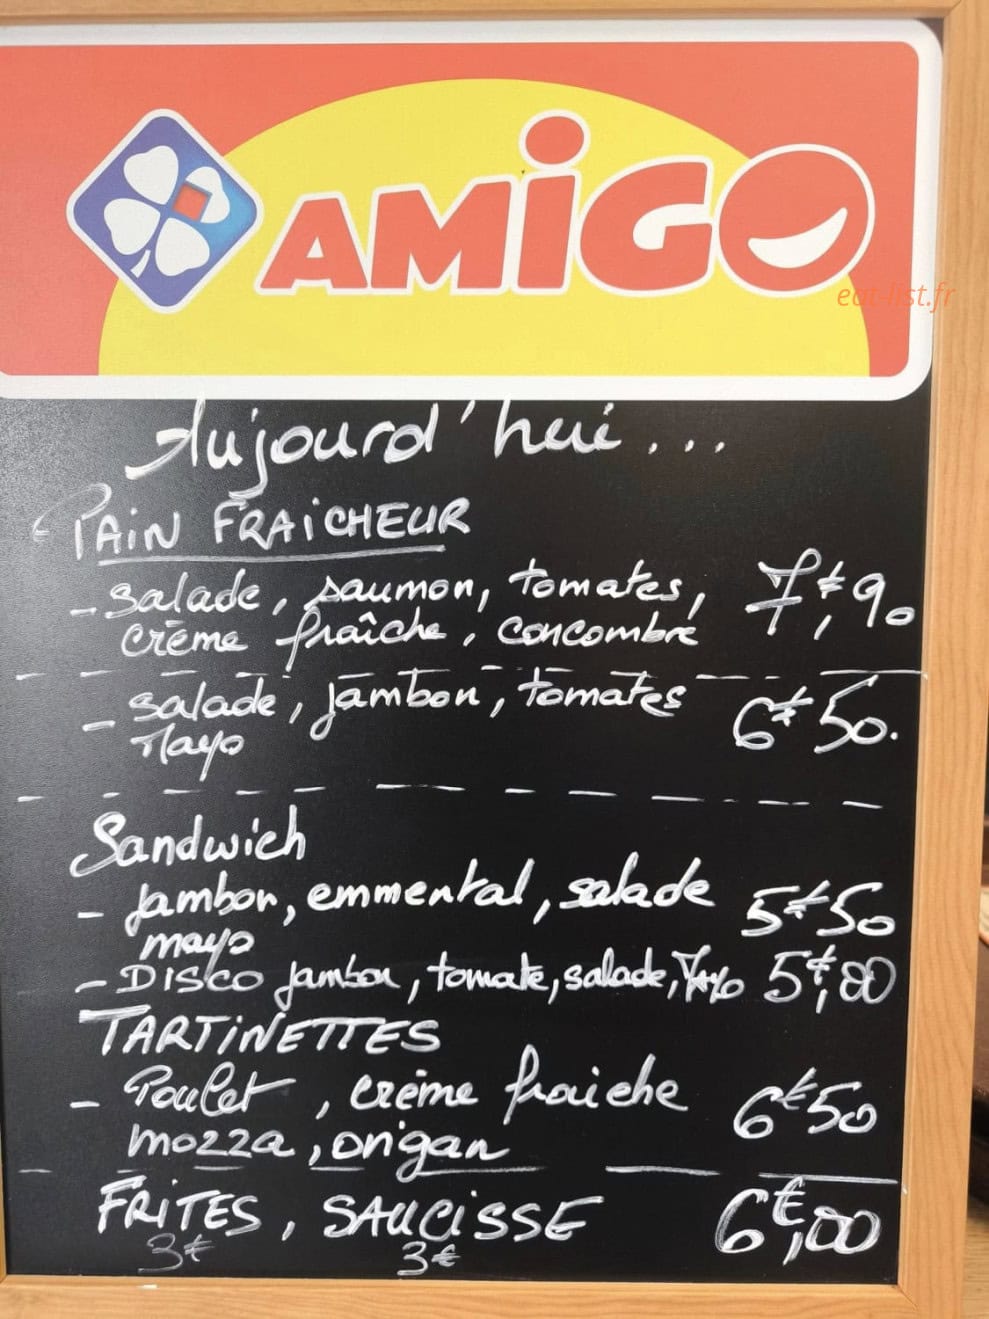 AMIGO
eat-list.fr
Aujourd'hui...
- PAIN FRAiCHEUR
- Salade, saumon, tomates, 7€,90
crème fraîche, concombre
- Salade, jambon, tomates 6€50.
Mayo
Sandwich
- Jambon, emmental, salade 5€50
mayo
- DISCO jambon, tomate, salade, Mayo 5€,00
TARTiNETTES
- Poulet, crème fraiche 6€50
mozza, origan
FRiTES, SAUCiSSE 6€,00
3€ 3€